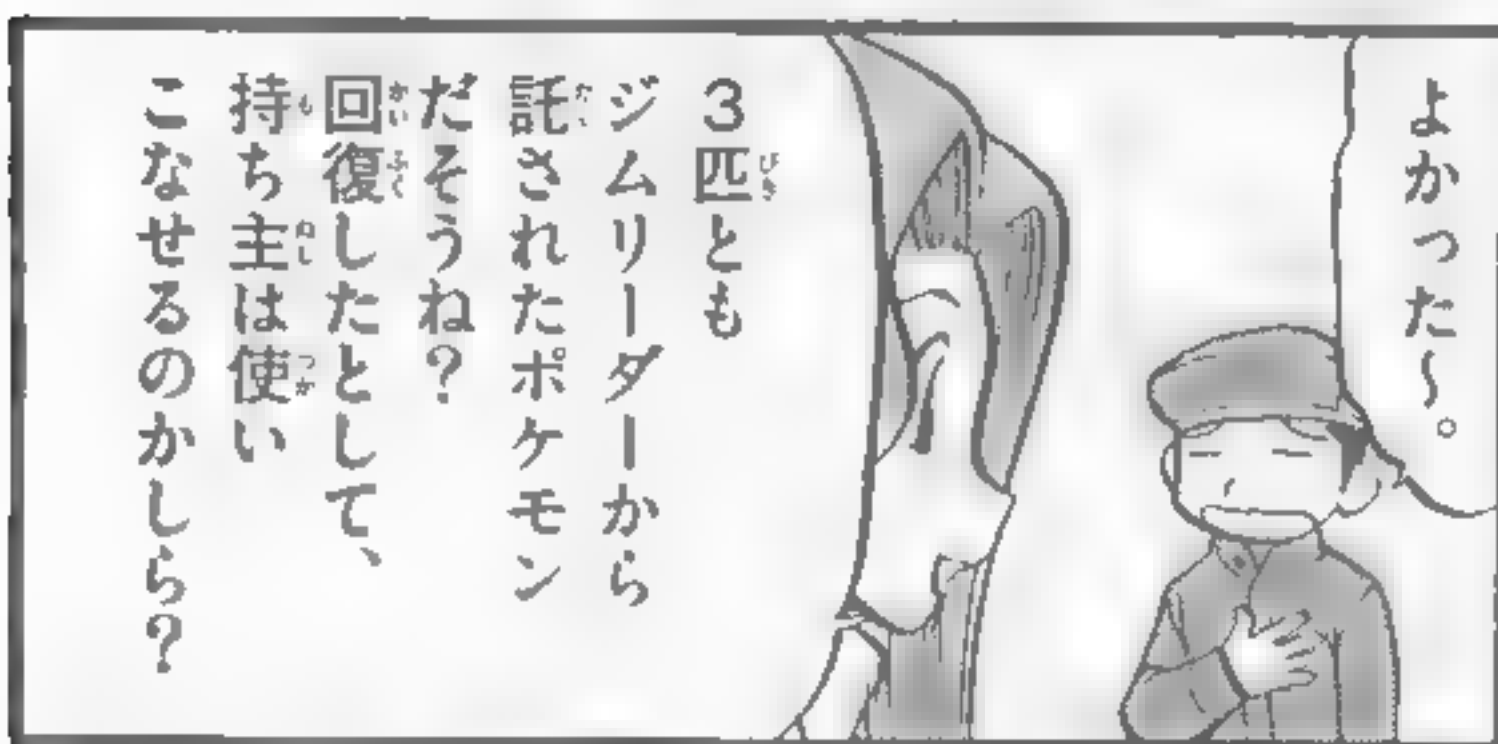 よかった～。
３匹とも
ジムリーダーから
託されたポケモン
だそうね？
回復したとして、
持ち主は使い
こなせるのかしら？